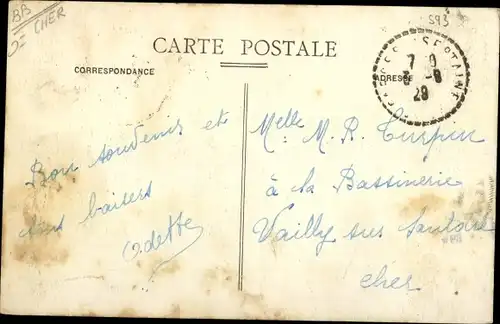 BB
CHER
593
CARTE POSTALE
CORRESPONDANCE
ADRESSE
7 0
-8
29
Bon souvenir et
baisers
Odette
Melle M. R. Turpin
à la Bassinerie
Vailly sur Sauldre
Cher